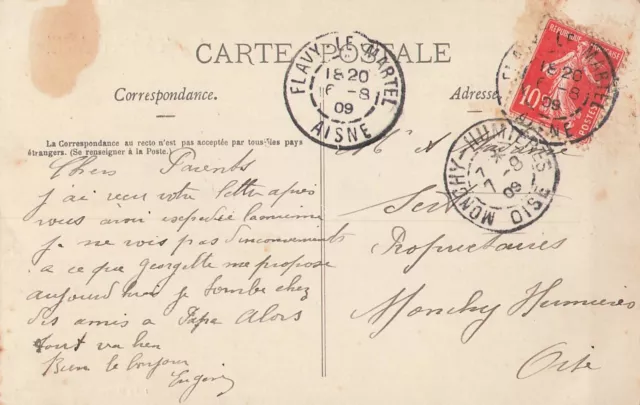 CARTE POSTALE
Correspondance.
Adresse
La Correspondance au recto n'est pas acceptée par tous les pays
étrangers. (Se renseigner à la Poste.)
FLAVY-LE-MARTEL
18 20
6-8
09
AISNE
REPUBLIQUE FRANÇAISE
10
POSTES
18 20
6-8
09
AISNE
MONCHY-HUMIÈRES
7-8
09
OISE
Chers Parents
j'ai reçu votre lettre après
vous avoir expédié la mienne
je ne vois pas d'inconvenients
a ce que Georgette me propose
aujourd'hui je tombe chez
des amis a Papa Alors
tout va bien
Bien le bonjour
Eugénie
M et Madame
Propriétaires
Monchy Humières
Oise